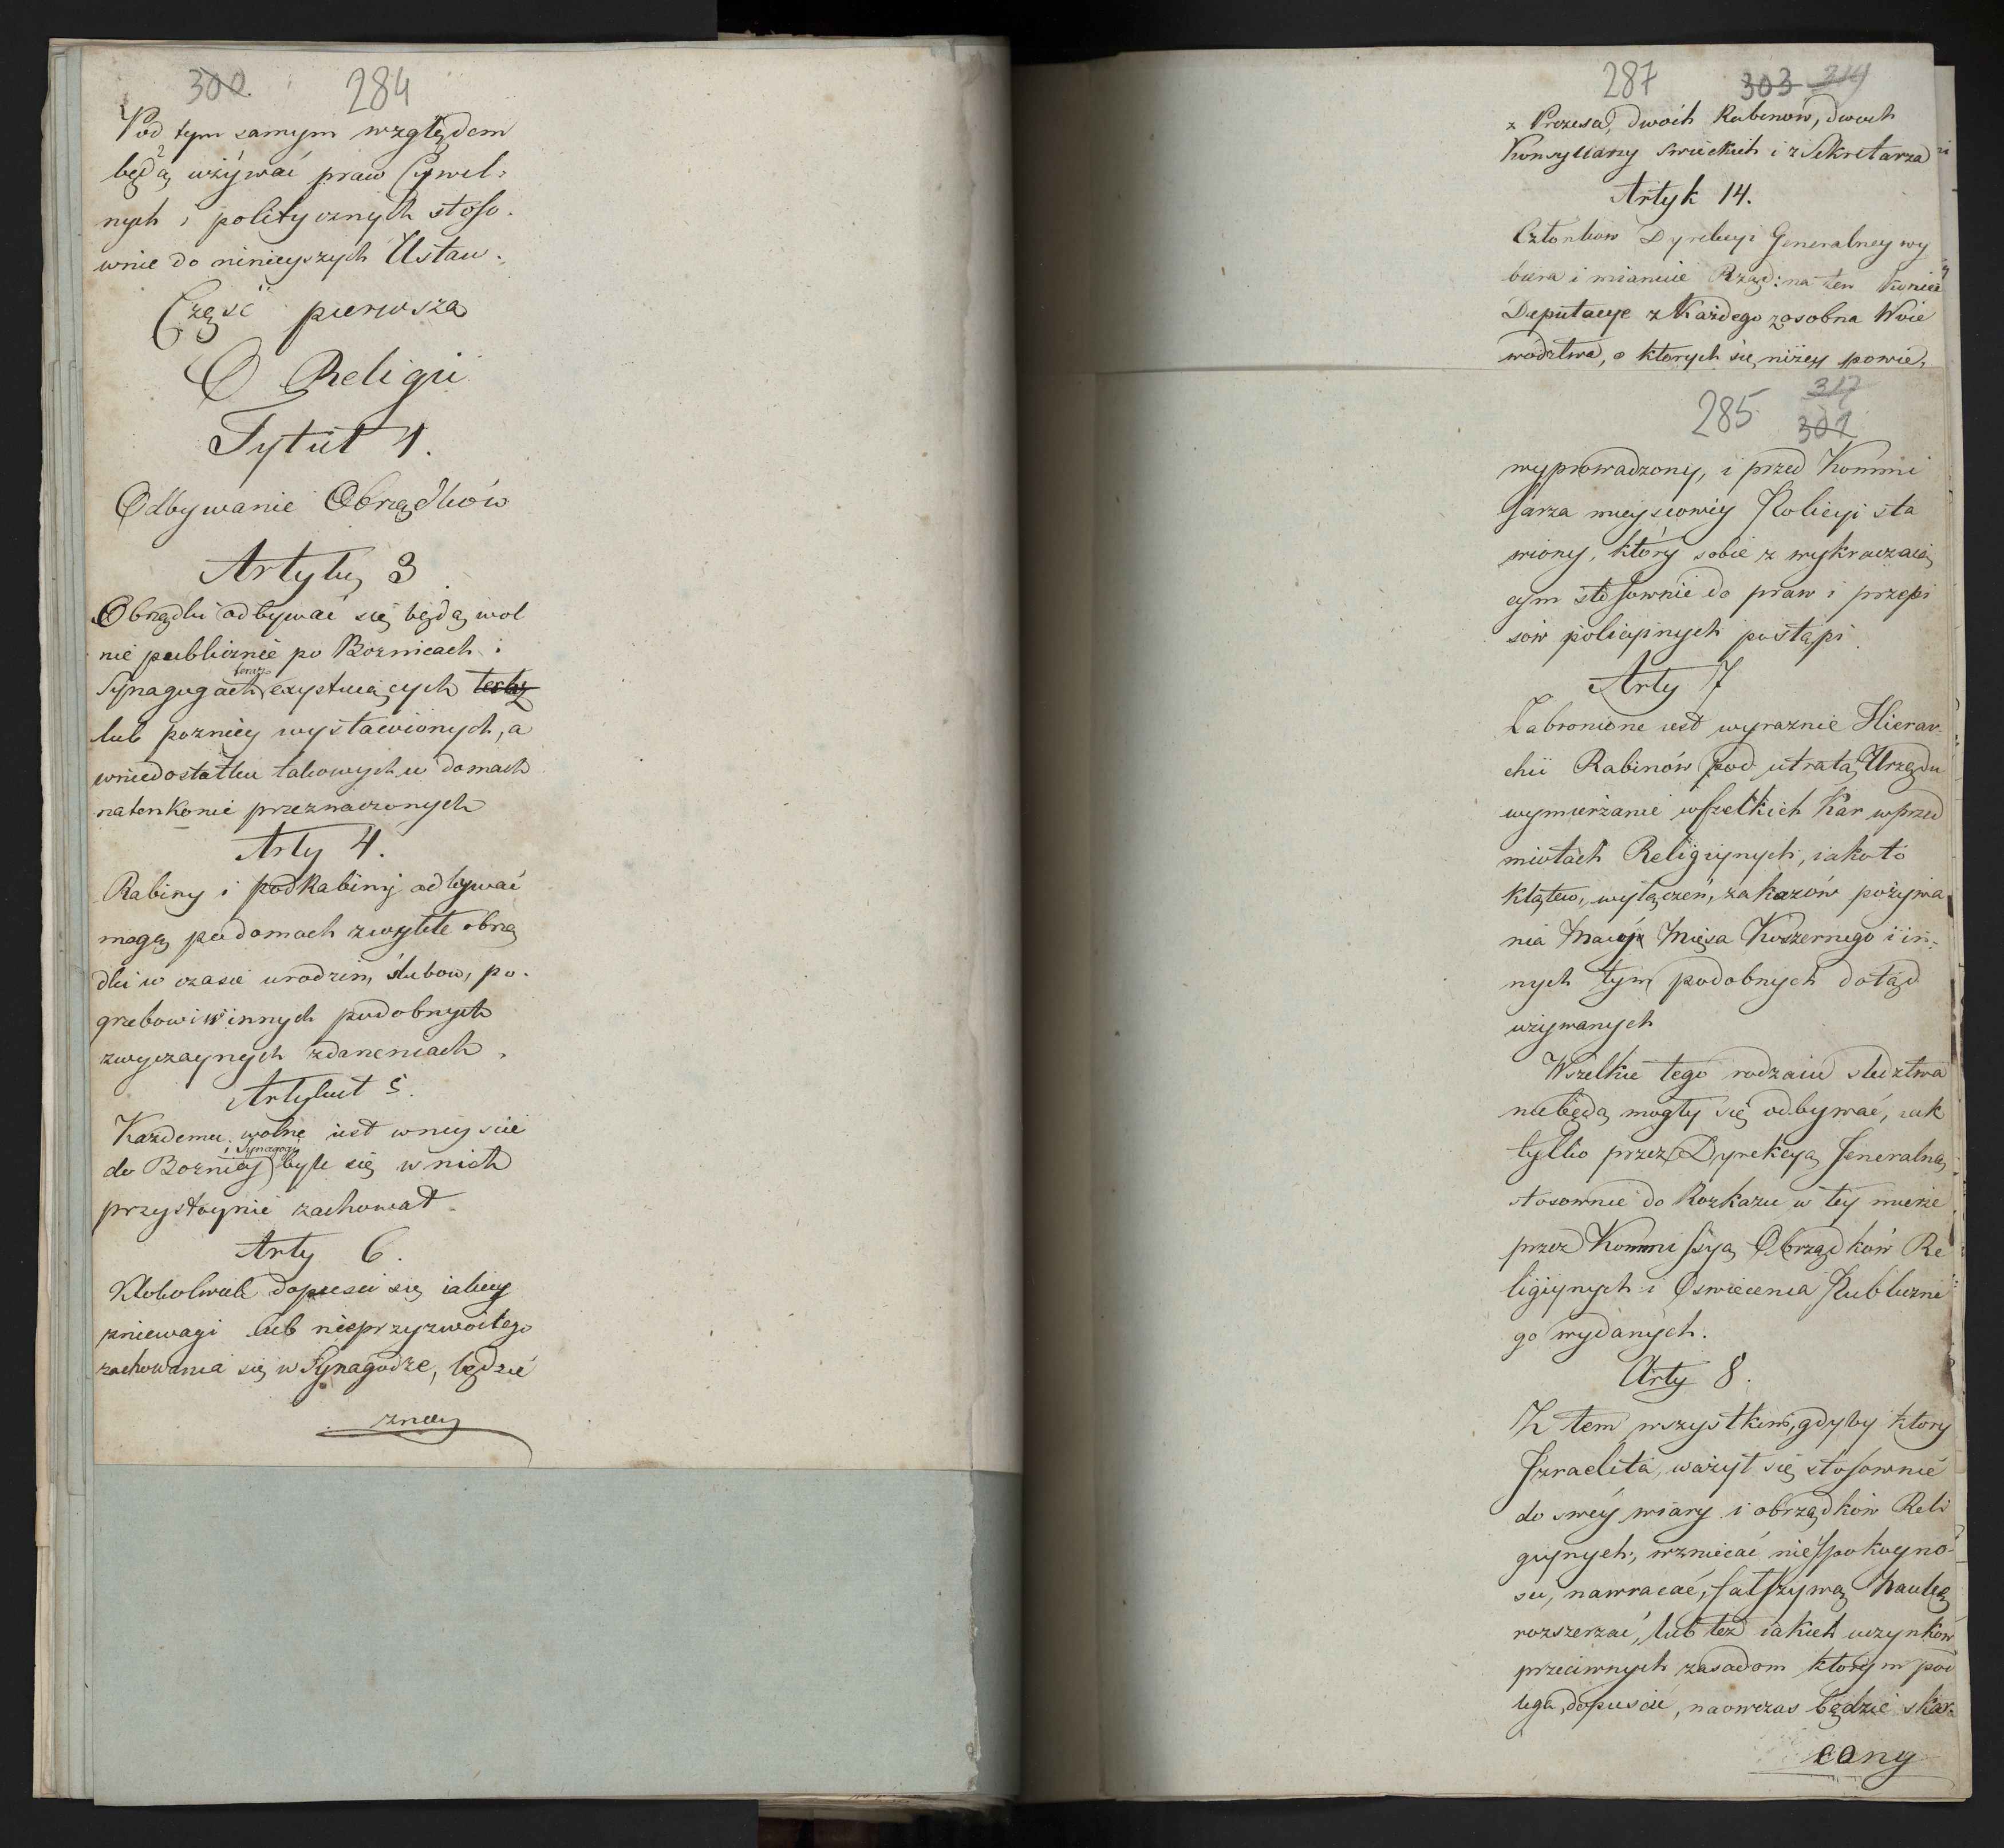 300 284
Pod tym samym względem
będą używać praw Cywil-
nych i politycznych stoso-
wnie do ninieyszych Ustaw.
Część pierwsza
O Religii
Tytuł 1.
Odbywanie Obrządków
Artyku 3
Obrządki odbywać się będą wol
nie publicznie po Boznicach i
teraz
Synagogach exystuiących
lub pozniey wystawionych, a
wniedostatku takowych w domach
natenkonie przeznaczonych
Arty 4.
Rabiny i podRabiny odbywać
mogą podomach zwykłe obrzą
dki w czasie urodzin, slubow, po-
grzebow i w innych podobnych
zwyczaynych zdarzeniach.
Artykuł 5.
Kazdemu wolne iest wniyscie
i Synagogi
do Boznicy byle się w nich
przystoynie zachował
Arty 6.
Ktokolwiek dopusci się iakiey
zniewagi lub nieprzyzwoitego
zachowania się w Synagodze, będzie
287 303 314
z Prezesa, dwoch Rabinów, dwoch
Konsyliarzy Swieckich i z Sekretarza
Artyk 14.
Członkow Dyrekcyi Generalney wy
biera i mianuie Rząd: na ten koniec
Deputacye z Każdego zosobna Woie
wodztwa, o ktorych się niżey powie,
285 317
302
wyprowadzony, i przed Kommi
sarza mieyscowey Policyi sta
wiony, który sobie z wykraczaią
cym stosownie do praw i przepi
sów policyinych postąpi.
Arty 7
Zabronione iest wyraznie Hierar-
chii Rabinów pod utratą Urzędu
wymierzanie wszelkich Kar w przed
miotach Religiynych, iakoto
klątew, wyłączeń, zakazów pożywa
nia Macy Mięsa Koszernego i in-
nych tym podobnych dotąd
używanych
Wszelkie tego rodzaiu sledztwa
niebędą mogły się odbywać, iak
tylko przez Dyrekcyą Jeneralną
stosownie do Rozkazu w tey mierze
przez Kommissyą Obrządków Re
ligiynych i Oswiecenia Publiczne
go wydanych.
Arty 8.
Z tem wszystkim, gdyby ktory
Izraelita, ważył się stosownie
do swéy wiary i obrządków Reli
giynych, wzniecać niespokoyno-
sci, nawracać, fałszywą Naukę
rozszerzać, lub też iakich uczynków
przeciwnych zasadom ktorym pod
lega, dopuscić, naowczas będzie skar-
cony